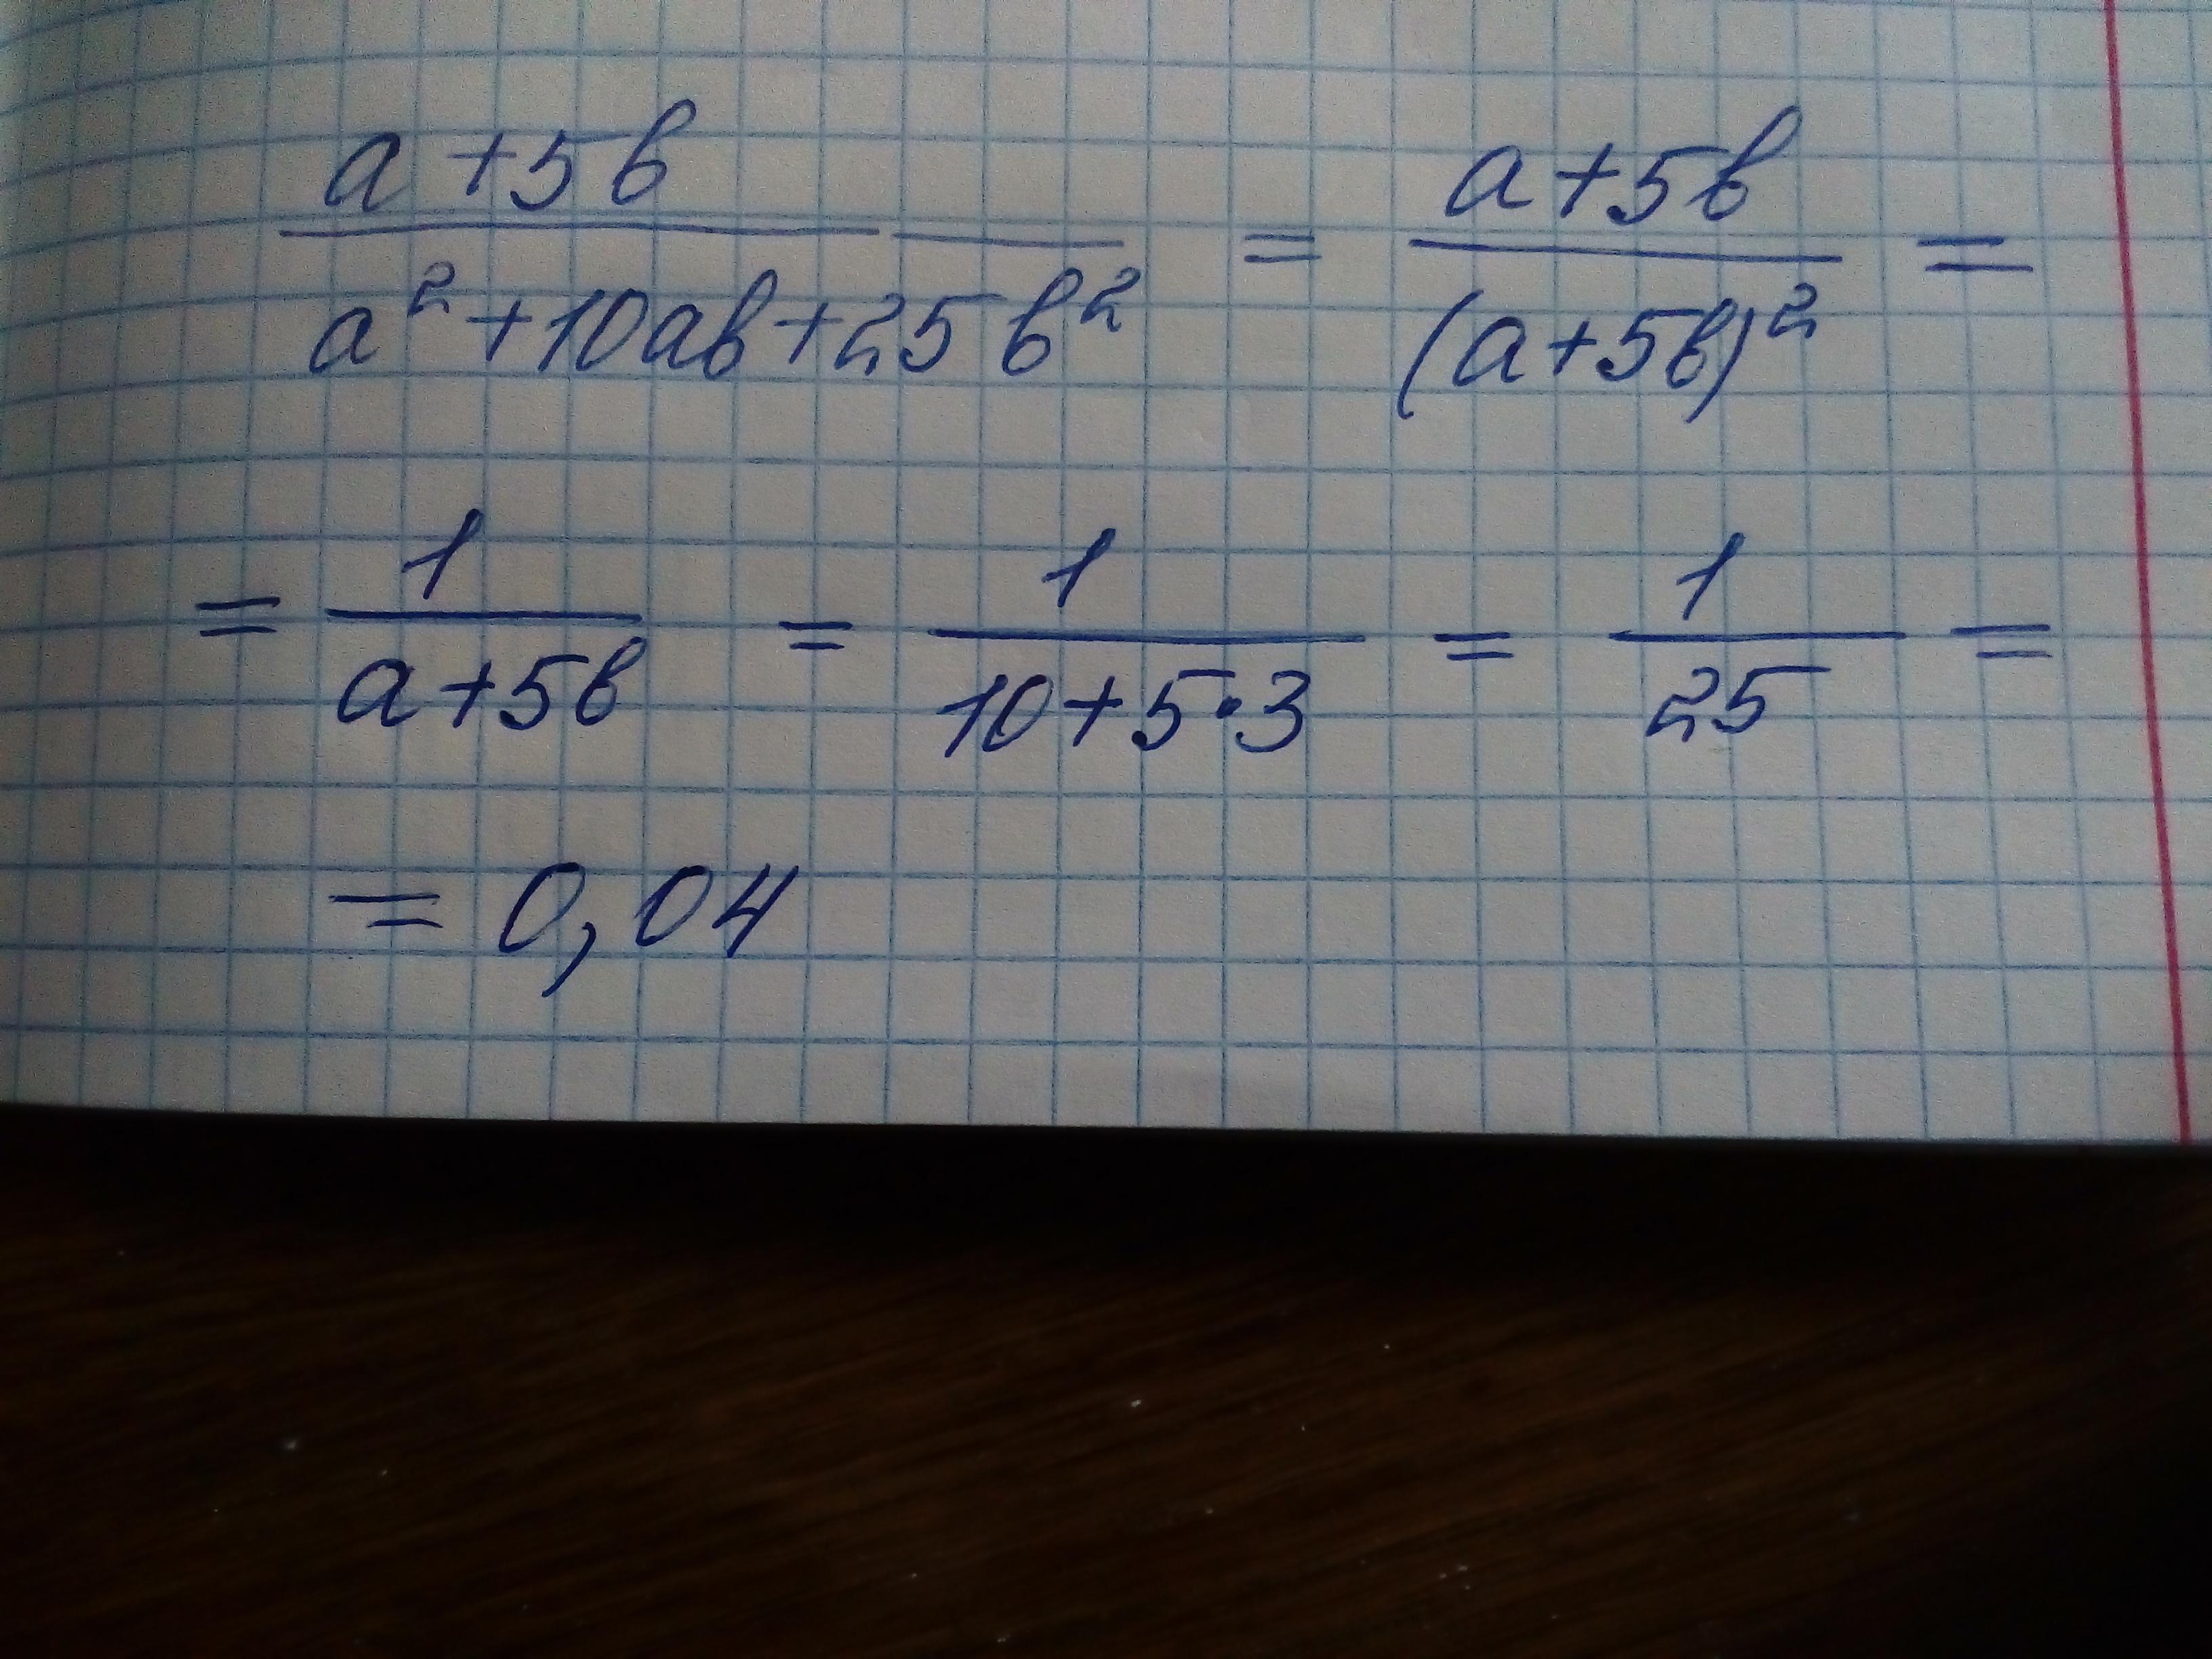 (a+5b)/(a²+10ab+25b²) = (a+5b)/(a+5b)² =
= 1/(a+5b) = 1/(10+5·3) = 1/25 =
= 0,04